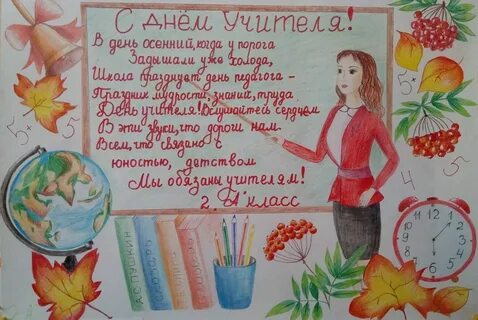 С Днём Учителя!
В день осенний, когда у порога
Задышали уже холода,
Школа празднует день педагога –
Праздник мудрости, знаний, труда.
День учителя! Вслушайтесь сердцем
В эти звуки, что дороги нам.
Всем, что связано с
юностью, детством
Мы обязаны учителям!
2 "А" класс
5+
5
5+
5
4
5
А.С. ПУШКИН
СЛОВАРЬ
12
1
2
3
4
5
6
7
8
9
10
11